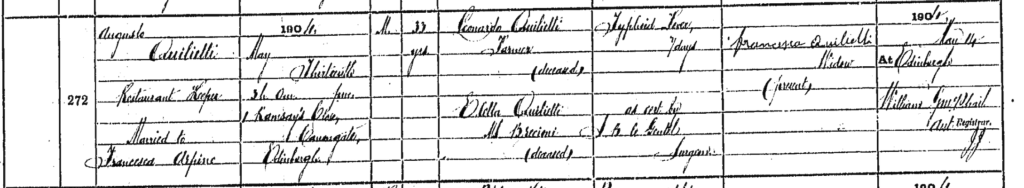 272
Augusto
Quilietti
Restaurant Keeper
Married to
Francesca Arpine
1904
May
Thirteenth
3h. 0m. a.m.
1 Ramsay's Close,
Canongate,
Edinburgh
M.
33
yrs
Leonardo Quilietti
Farmer
(deceased)
Stella Quilietti
M.S. Brecioni
(deceased)
Typhoid Fever,
7 days
as cert by
Surgeon
Francesca Quilietti
Widow
(present)
1904,
May 14
At Edinburgh
William
Asst Registrar.